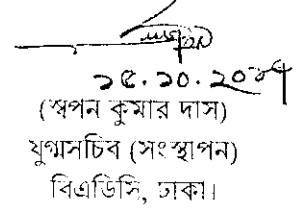 ১৫.১০.২০১৭
(স্বপন কুমার দাস)
যুগ্মসচিব (সংস্থাপন)
বিএডিসি, ঢাকা।